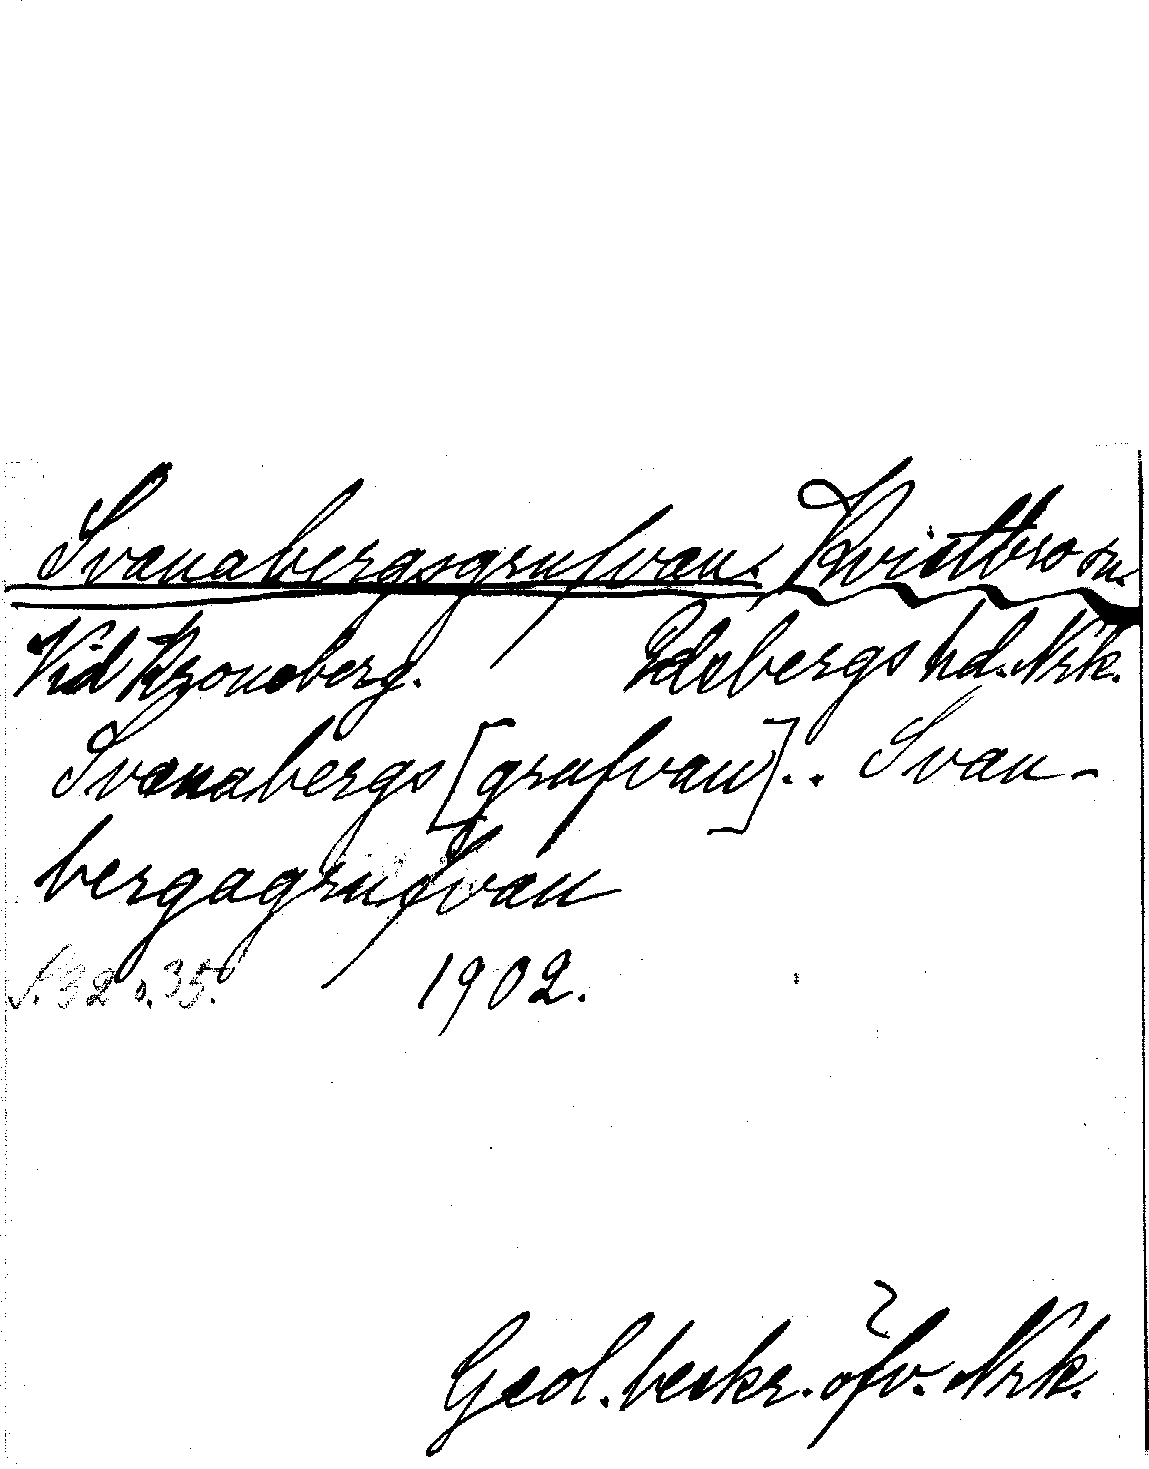 Svanabergsgrufvan. Kvistbro sn.
Vid Kroneberg. Edsbergs hd. Nrk.
Svanabergs [grufvan].. Svan-
bergagrufvan
S. 32 o. 35. 1902.
Geol. beskr. öfv. Nrk.